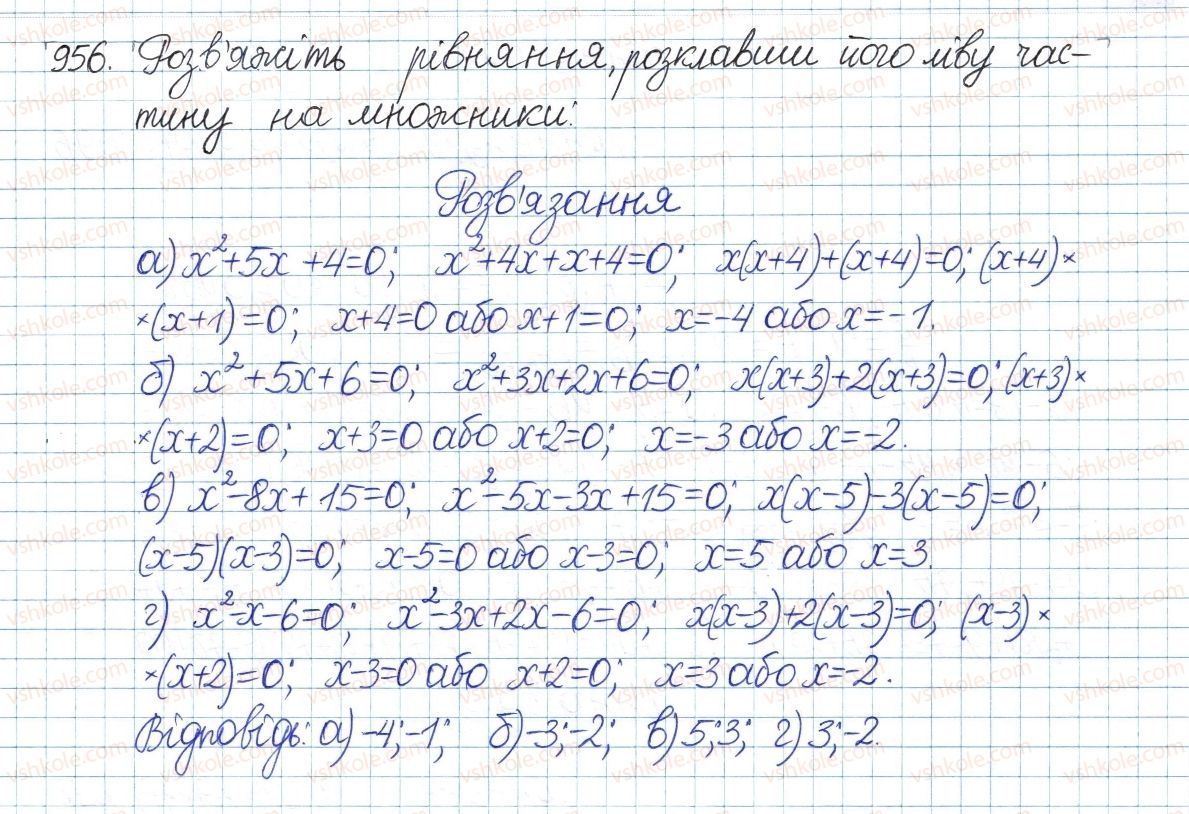 956. Розв'яжіть рівняння, розклавши його ліву час-
тину на множники:
Розв'язання
а) x²+5x+4=0; x²+4x+x+4=0; x(x+4)+(x+4)=0; (x+4)×
×(x+1)=0; x+4=0 або x+1=0; x=-4 або x=-1.
б) x²+5x+6=0; x²+3x+2x+6=0; x(x+3)+2(x+3)=0; (x+3)×
×(x+2)=0; x+3=0 або x+2=0; x=-3 або x=-2.
в) x²-8x+15=0; x²-5x-3x+15=0; x(x-5)-3(x-5)=0;
(x-5)(x-3)=0; x-5=0 або x-3=0; x=5 або x=3.
г) x²-x-6=0; x²-3x+2x-6=0; x(x-3)+2(x-3)=0; (x-3)×
×(x+2)=0; x-3=0 або x+2=0; x=3 або x=-2.
Відповідь: а) -4; -1; б) -3; -2; в) 5; 3; г) 3; -2.